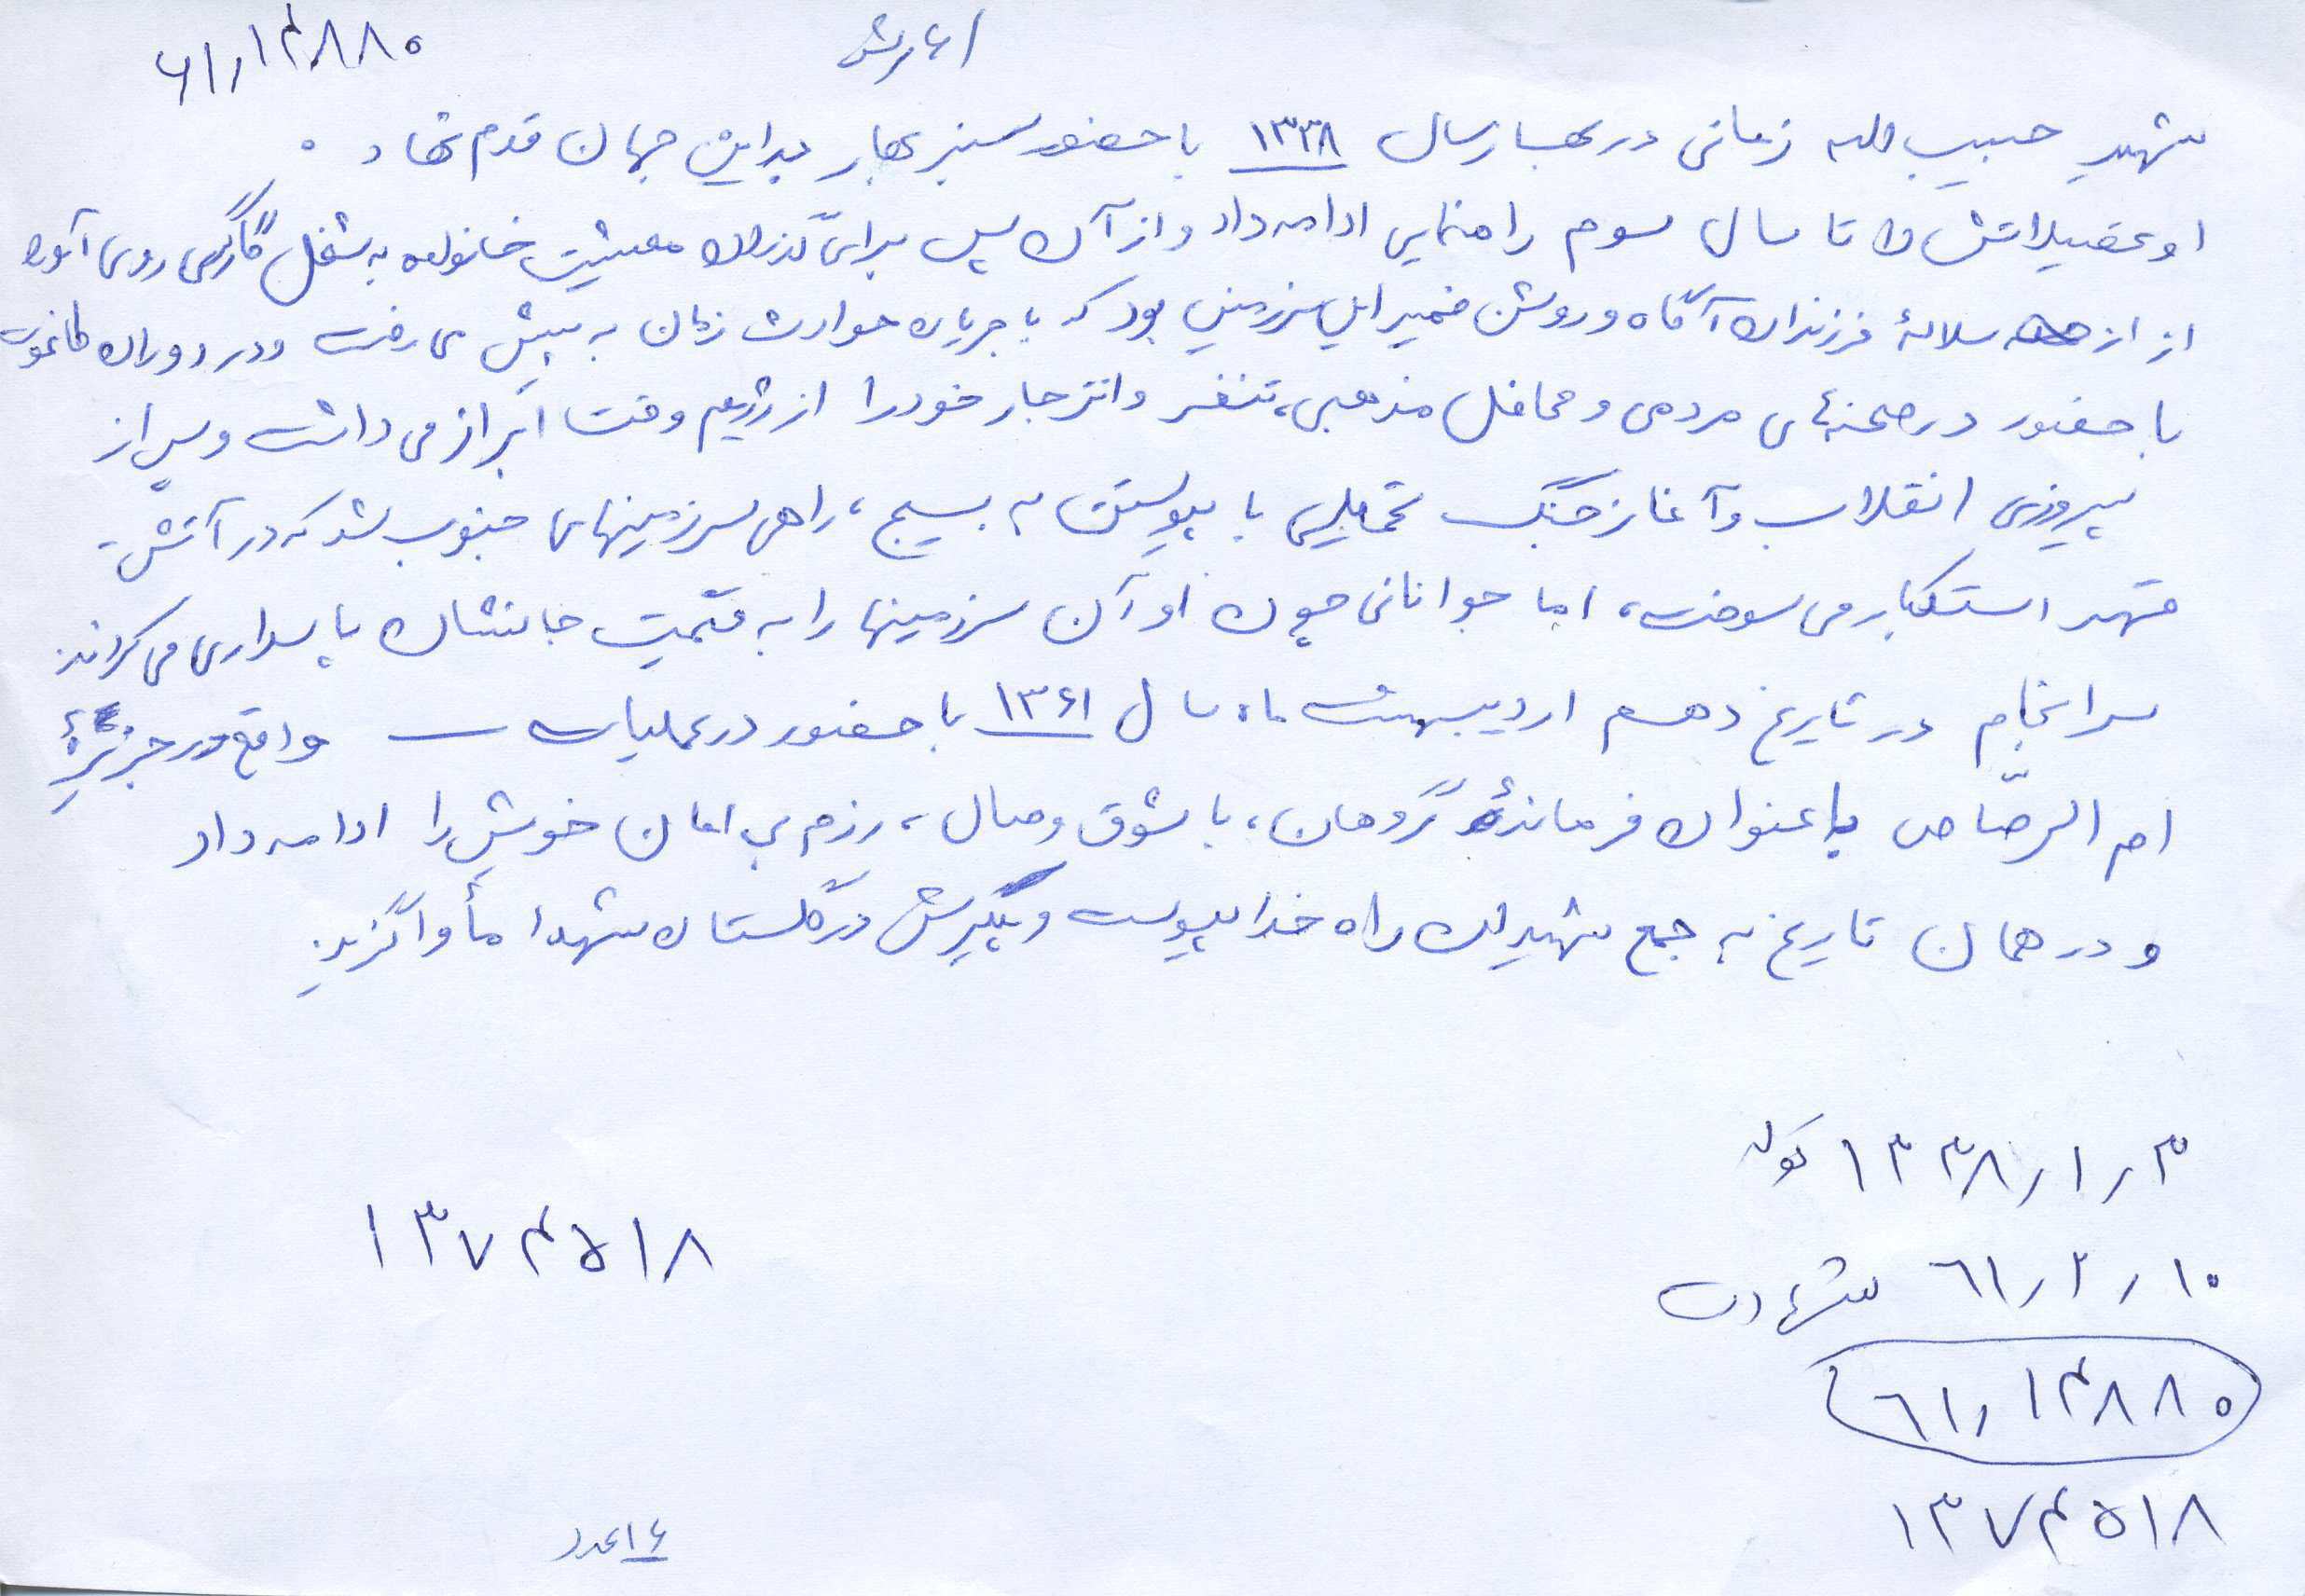 ۶۱٫۱۴۸۸۰
شهید حبیب الله زمانی در بهار سال ۱۳۳۸ با حضور سبز بهار به این جهان قدم نهاد.
او تحصیلاتش را تا سال سوم راهنمایی ادامه داد و از آن پس برای گذران معیشت خانواده به شغل کارگری روی آورد
از سلالهٔ فرزندان آگاه و روشن ضمیر این سرزمین بود که با جریان حوادث زمان به پیش می رفت و در دوران طاغوت
با حضور در صحنه‌های مردمی و محافل مذهبی، تنفر و انزجار خود را از رژیم وقت ابراز می داشت و پس از
پیروزی انقلاب و آغاز جنگ تحمیلی با پیوستن به بسیج، راهی سرزمینهای جنوب شد که در آتش
قهر استکبار می سوخت، اما جوانانی چون او آن سرزمینها را به قیمت جانشان پاسداری می کردند.
سرانجام در تاریخ دهم اردیبهشت ماه سال ۱۳۶۱ با حضور در عملیات — واقع در جزیرهٔ
ام الرصّاص با عنوان فرماندهٔ گروهان، با شوق وصال، رزم بی امان خویش را ادامه داد
و در همان تاریخ به جمع شهیدان راه خدا پیوست و پیکرش در گلستان شهدا مأوا گزید.
۳٫۱٫۱۳۳۸ تولد
۱۰٫۲٫۶۱ شهادت
۶۱٫۱۴۸۸۰
۱۳۷۴۵۱۸
۱۳۷۴۵۱۸